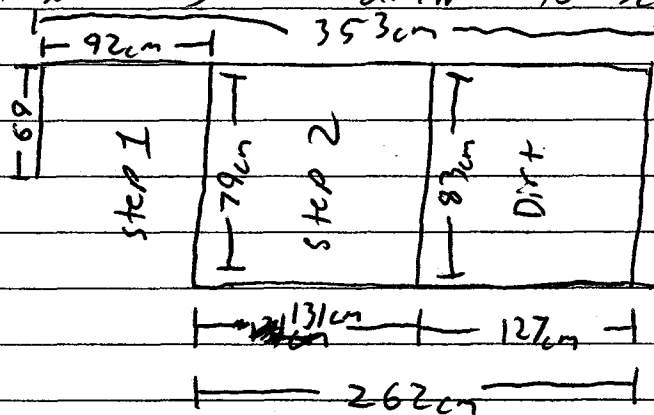 353cm
92cm
69
step 1
79cm
step 2
83cm
Dirt
131cm
127cm
262cm